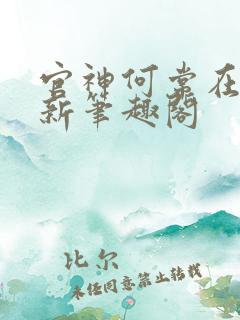 官神何常在
新笔趣阁
比尔
未经同意禁止转载